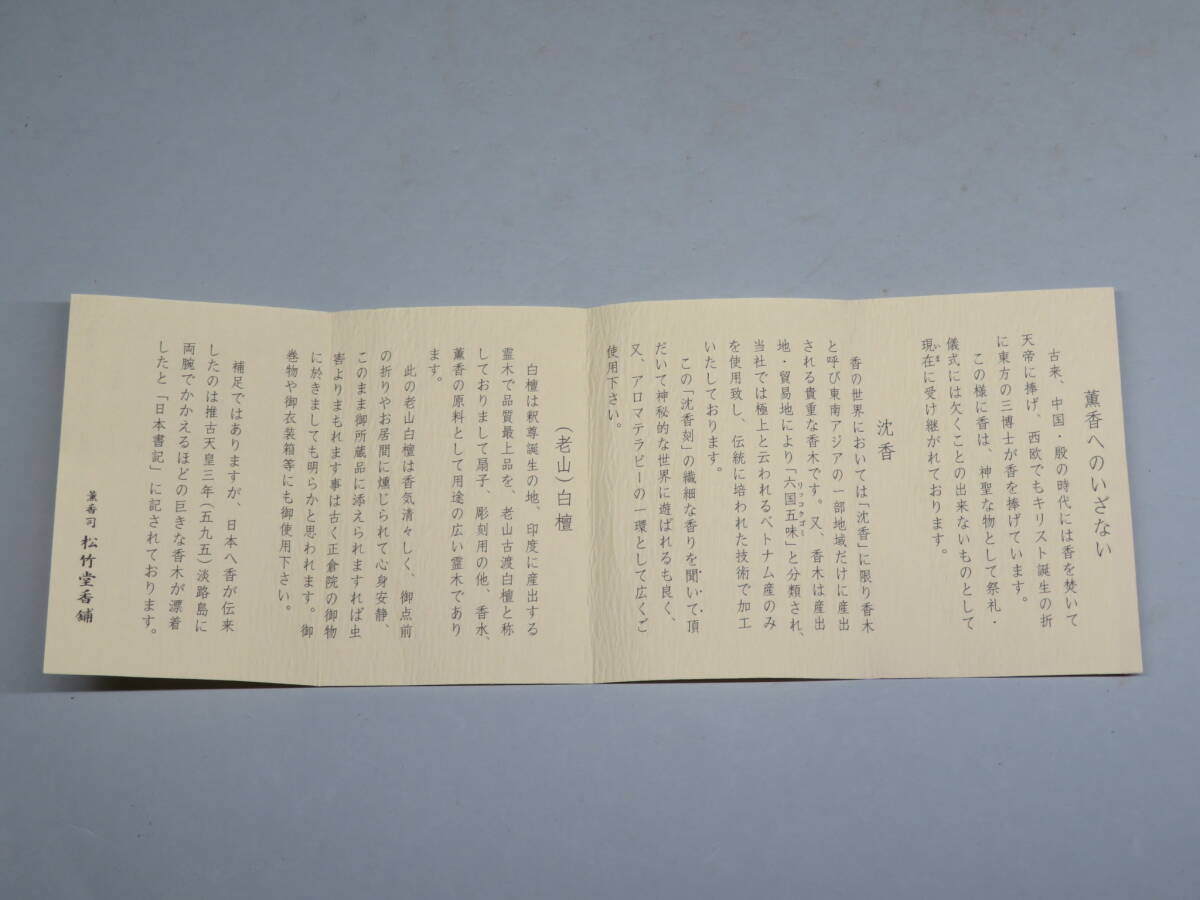 薫香へのいざない
古来、中国・殷の時代には香を焚いて
天帝に捧げ、西欧でもキリスト誕生の折
に東方の三博士が香を捧げています。
この様に香は、神聖な物として祭礼・
儀式には欠くことの出来ないものとして
現在に受け継がれております。
いま
沈香
香の世界においては「沈香」に限り香木
と呼び東南アジアの一部地域だけに産出
される貴重な香木です。又、香木は産出
地・貿易地により「六国五味」と分類され、
リッコクゴミ
当社では極上と云われるベトナム産のみ
を使用致し、伝統に培われた技術で加工
いたしております。
この「沈香刻」の繊細な香りを聞いて頂
だいて神秘的な世界に遊ばれるも良く、
又、アロマテラピーの一環として広くご
使用下さい。
（老山）白檀
白檀は釈尊誕生の地、印度に産出する
霊木で品質最上品を、老山古渡白檀と称
しておりまして扇子、彫刻用の他、香水、
薫香の原料として用途の広い霊木であり
ます。
此の老山白檀は香気清々しく、御点前
の折りやお居間に燻じられて心身安静、
このまま御所蔵品に添えられますれば虫
害よりまもれます事は古く正倉院の御物
に於きましても明らかと思われます。御
巻物や御衣装箱等にも御使用下さい。
補足ではありますが、日本へ香が伝来
したのは推古天皇三年（五九五）淡路島に
両腕でかかえるほどの巨きな香木が漂着
したと「日本書記」に記されております。
薫香司 松竹堂香舗